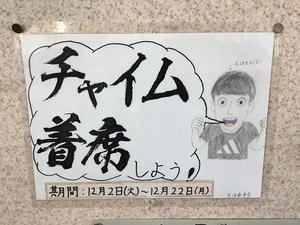 チャイム
着席しよう!
期間:12月2日(火)~12月22日(月)